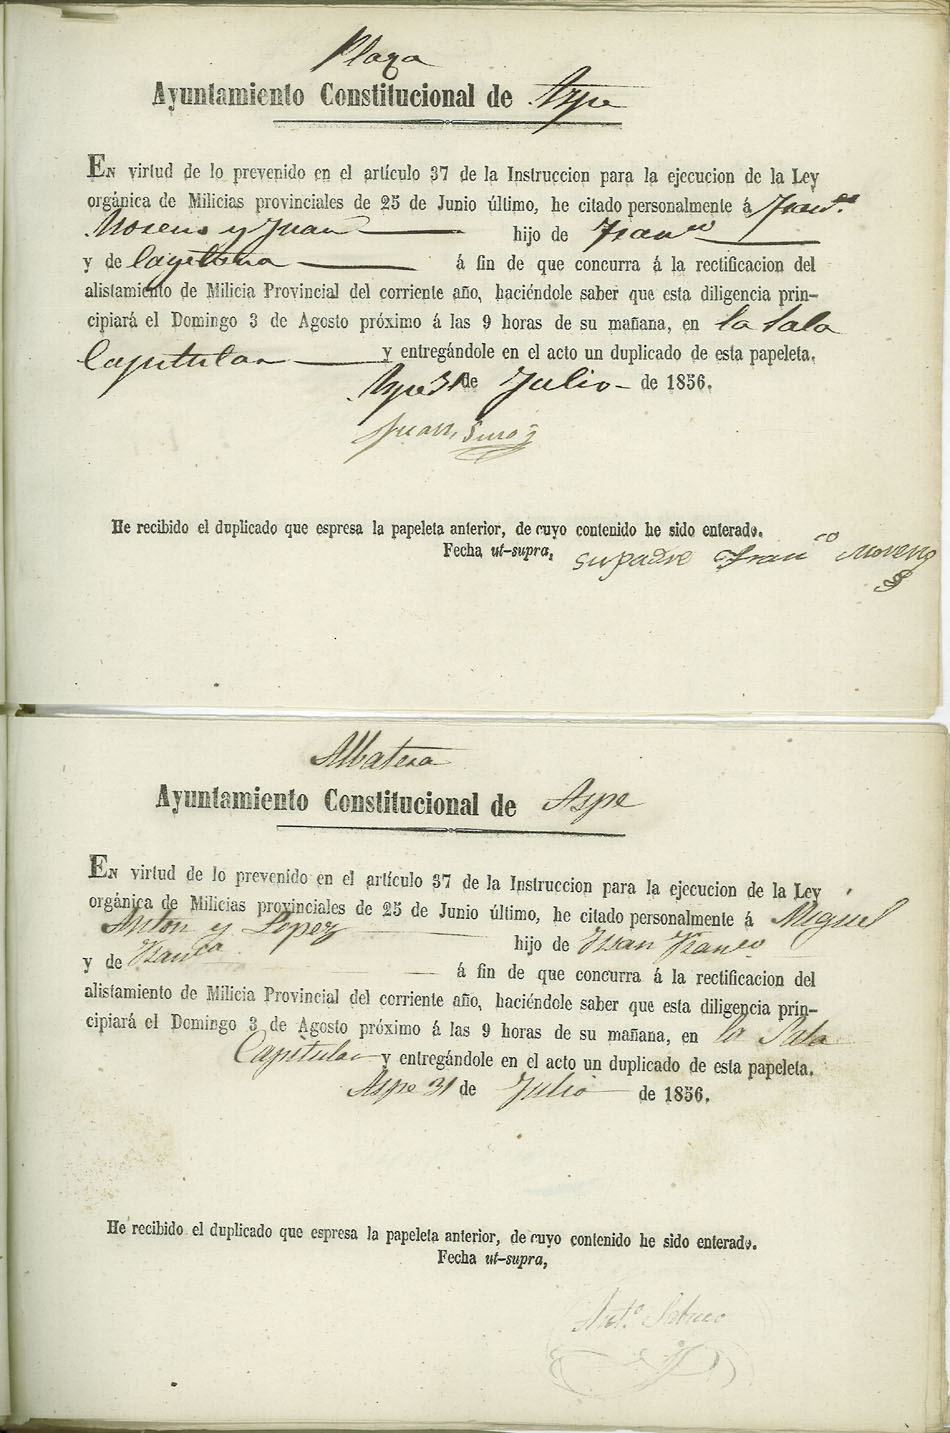 Plaza
Ayuntamiento Constitucional de Aspe
EN virtud de lo prevenido en el artículo 37 de la Instruccion para la ejecucion de la Ley
orgánica de Milicias provinciales de 25 de Junio último, he citado personalmente á Fran.co
Moreno y Juan hijo de Fran.co
y de Cayetana á fin de que concurra á la rectificacion del
alistamiento de Milicia Provincial del corriente año, haciéndole saber que esta diligencia prin-
cipiará el Domingo 3 de Agosto próximo á las 9 horas de su mañana, en la Sala
Capitular y entregándole en el acto un duplicado de esta papeleta.
Aspe 31 de Julio de 1856.
Juan
He recibido el duplicado que espresa la papeleta anterior, de cuyo contenido he sido enterado.
Fecha ut-supra, su padre Fran.co Moreno
Albatera
Ayuntamiento Constitucional de Aspe
EN virtud de lo prevenido en el artículo 37 de la Instruccion para la ejecucion de la Ley
orgánica de Milicias provinciales de 25 de Junio último, he citado personalmente á Miguel
Anton y Lopez hijo de Fran.co
y de Fran.ca á fin de que concurra á la rectificacion del
alistamiento de Milicia Provincial del corriente año, haciéndole saber que esta diligencia prin-
cipiará el Domingo 3 de Agosto próximo á las 9 horas de su mañana, en la Sala
Capitular y entregándole en el acto un duplicado de esta papeleta.
Aspe 31 de Julio de 1856.
He recibido el duplicado que espresa la papeleta anterior, de cuyo contenido he sido enterado.
Fecha ut-supra,
Ant.o